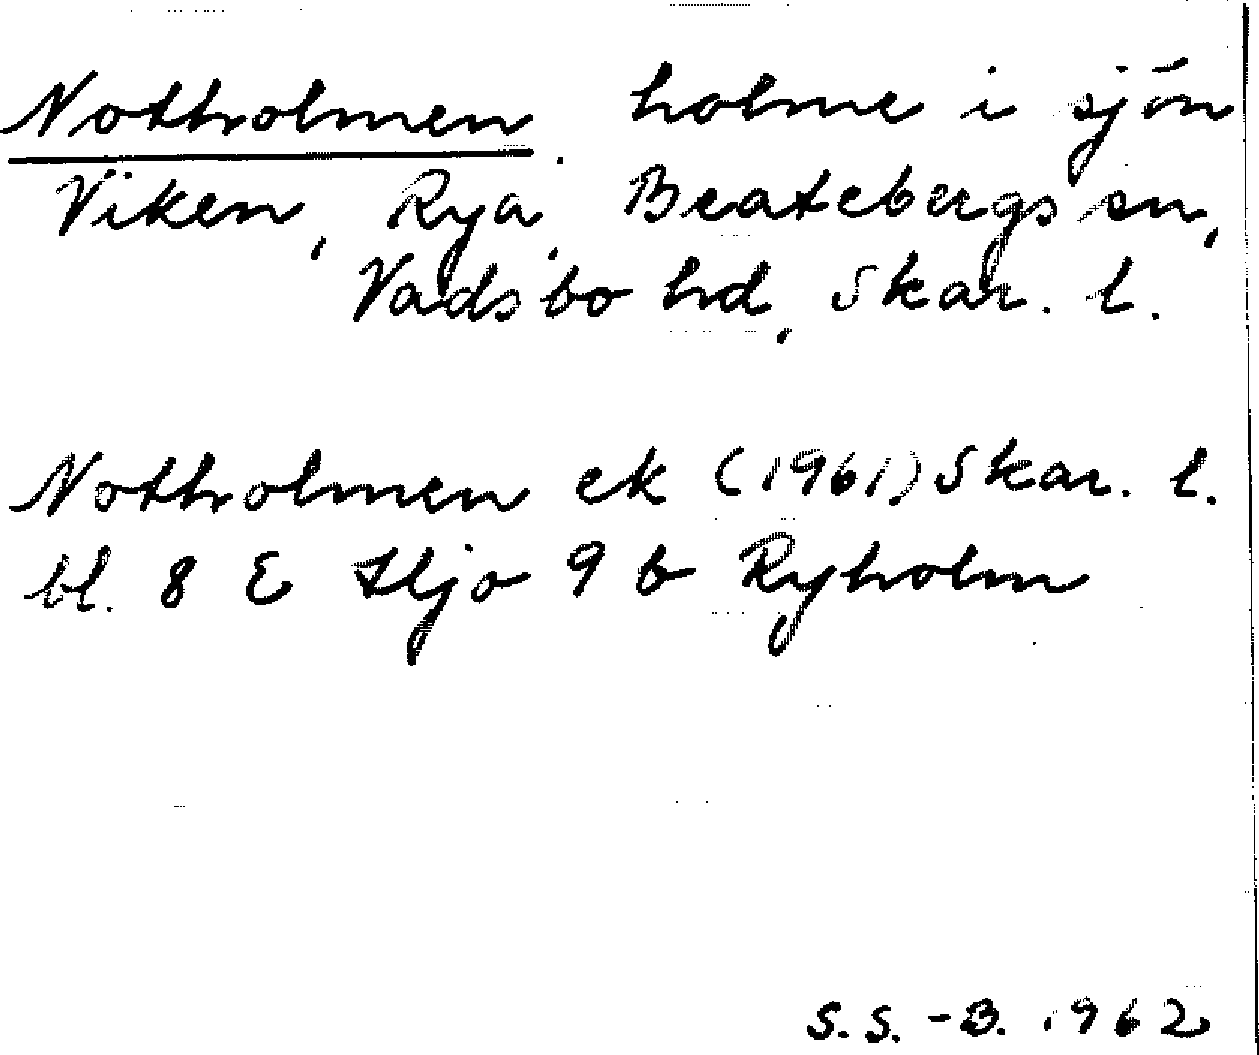 Notholmen, holme i sjön
Viken, Rya, Beatebergs sn,
Vadsbo hd, Skar. l.
Notholmen ek (1961) Skar. l.
bl. 8 E Hjo 9 b Ryholm
S. S. -B. 1962